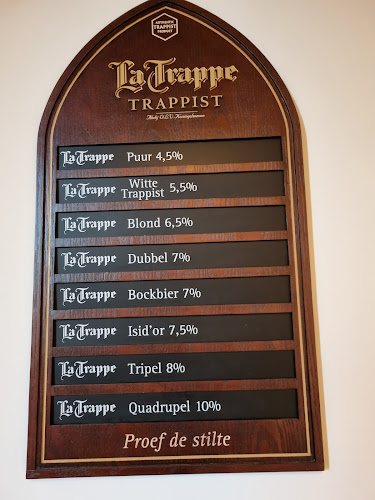 AUTHENTIC
TRAPPIST
PRODUCT
La Trappe
TRAPPIST
Abdij O.L.V. Koningshoeven
La Trappe Puur 4,5%
La Trappe Witte Trappist 5,5%
La Trappe Blond 6,5%
La Trappe Dubbel 7%
La Trappe Bockbier 7%
La Trappe Isid'or 7,5%
La Trappe Tripel 8%
La Trappe Quadrupel 10%
Proef de stilte